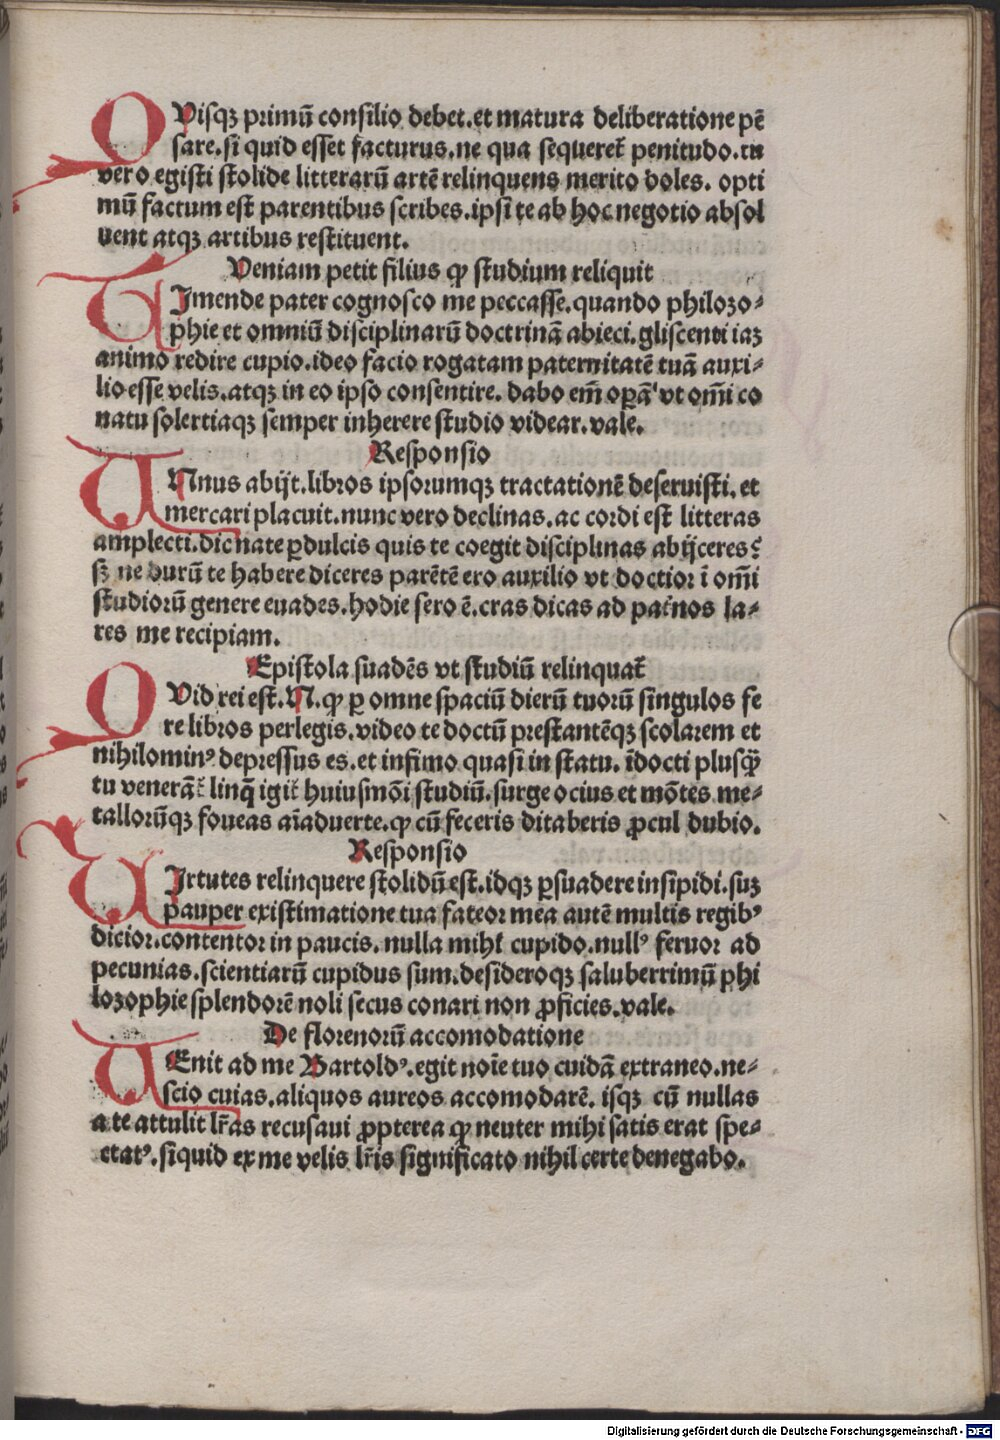 QVisqꝫ primū consilio debet.et matura deliberatione pē
sare.si quid esset facturus.ne qua sequeret᷑ penitudo.tu
vero egisti stolide litterarū artē relinquens merito doles. opti
mū factum est parentibus scribes.ipsi te ab hoc negotio absol
uent atqꝫ artibus restituent.
Veniam petit filius ꝙ studium reliquit
VImende pater cognosco me peccasse.quando philozo⸗
phie et omniū disciplinarū doctrinā abieci.gliscenti iaꝫ
animo redire cupio.ideo facio rogatam paternitatē tuā auxi⸗
lio esse velis.atqꝫ in eo ipso consentire. dabo em̄ oꝑā vt om̄i co
natu solertiaqꝫ semper inherere studio videar.vale.
Responsio
ANnus abijt.libros ipsorumqꝫ tractationē deseruisti.et
mercari placuit.nunc vero declinas.ac cordi est litteras
amplecti.dic nate ꝑdulcis quis te coegit disciplinas abijceres?
sꝫ ne durū te habere diceres parētē ero auxilio vt doctior ī om̄i
studiorū genere euades.hodie sero ē.cras dicas ad patnos la⸗
res me recipiam.
Epistola suadēs vt studiū relinquat᷑
QVid rei est.N.ꝙ ꝑ omne spaciū dierū tuorū singulos fe
re libros perlegis.video te doctū prestantēqꝫ scolarem et
nihilominꝰ depressus es.et infimo quasi in statu. īdocti plusꝙ̄
tu venerāt᷑ linq̄ igit᷑ huiusmōi studiū.surge ocius et mōtes me⸗
tallorūqꝫ foueas aīaduerte.ꝙ cū feceris ditaberis ꝓcul dubio.
Responsio
VIrtutes relinquere stolidū est.idqꝫ ꝑsuadere insipidi.suꝫ
pauper existimatione tua fateor mea autē multis regibꝰ
dicior.contentor in paucis. nulla mihi cupido.nullꝰ feruor ad
pecunias.scientiarū cupidus sum.desideroqꝫ saluberrimū phi
lozophie splendorē noli secus conari non ꝓficies.vale.
De florenorū accomodatione
VEnit ad me Bartoldꝰ.egit noīe tuo cuidā extraneo.ne⸗
scio cuias.aliquos aureos accomodarē. isqꝫ cū nullas
a te attulit lr̄as recusaui ꝓpterea ꝙ neuter mihi satis erat spe⸗
ctatꝰ.siquid ex me velis lr̄is significato nihil certe denegabo.
Digitalisierung gefördert durch die Deutsche Forschungsgemeinschaft - DFG